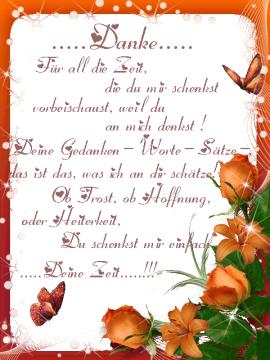 .....Danke.....
Für all die Zeit,
die du mir schenkst
vorbeischaust, weil du
an mich denkst !
Deine Gedanken - Worte - Sätze -
das ist das, was ich an dir schätze!
Ob Trost, ob Hoffnung,
oder Heiterkeit,
Du schenkst mir einfach
.....Deine Zeit.....!!!